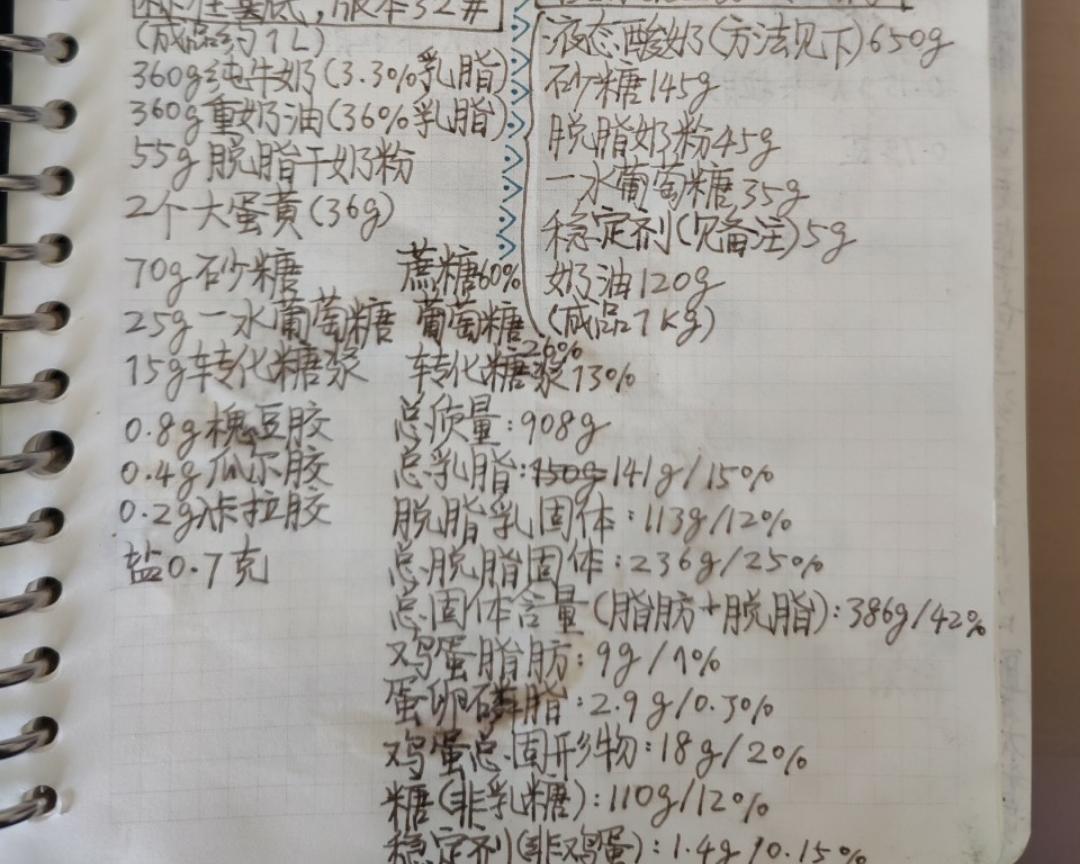 标准基底,版本32#
(成品约1L)
360g纯牛奶(3.3%乳脂)
360g重奶油(36%乳脂)
55g脱脂干奶粉
2个大蛋黄(36g)
70g砂糖
25g一水葡萄糖
15g转化糖浆
0.8g槐豆胶
0.4g瓜尔胶
0.2g卡拉胶
盐0.7克
蔗糖60%
葡萄糖26%
转化糖浆13%
总质量:908g
总乳脂:150g 141g/15%
脱脂乳固体:113g/12%
总脱脂固体:236g/25%
总固体含量(脂肪+脱脂):386g/42%
鸡蛋脂肪:9g/1%
蛋卵磷脂:2.9g/0.3%
鸡蛋总固形物:18g/2%
糖(非乳糖):110g/12%
稳定剂(非鸡蛋):1.4g/0.15%
液态酸奶(方法见下)650g
砂糖145g
脱脂奶粉45g
一水葡萄糖35g
稳定剂(见备注)5g
奶油120g
(成品1kg)